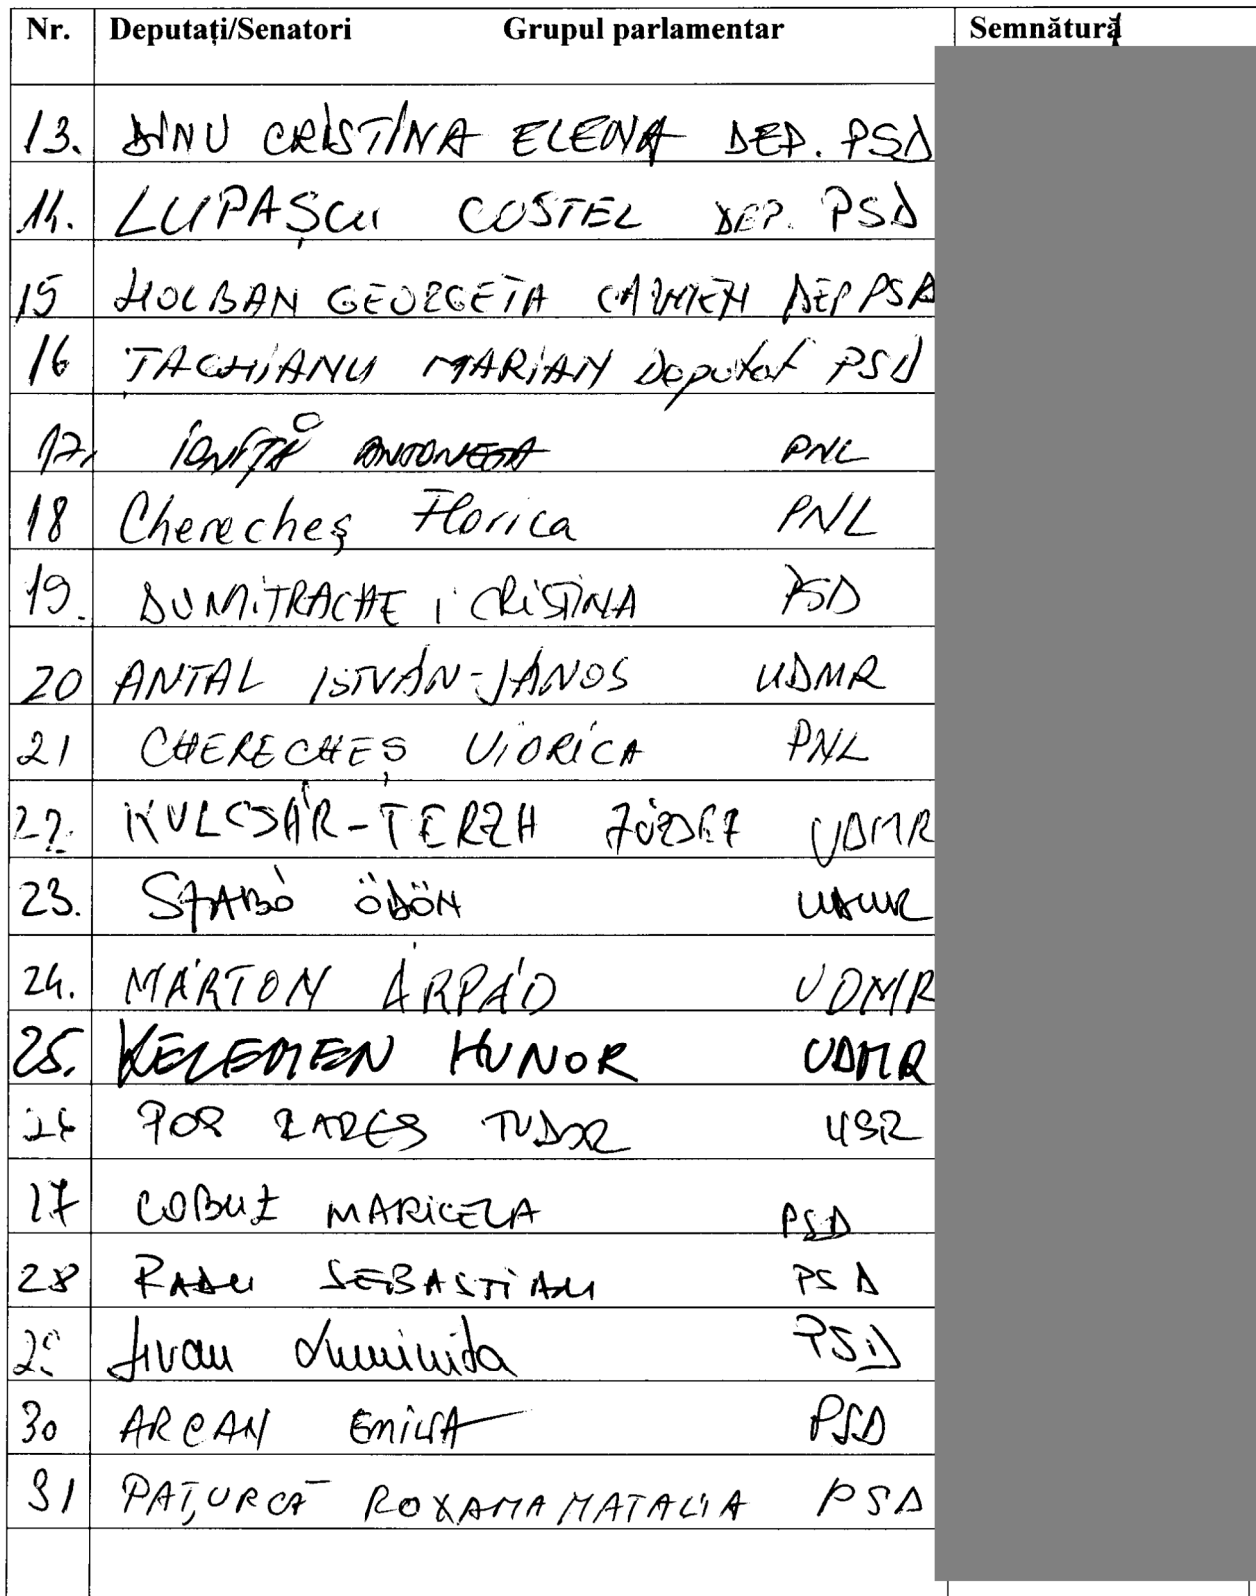 Nr. Deputați/Senatori Grupul parlamentar Semnătură
13. DINU CRISTINA ELENA DEP. PSD
14. LUPAȘCU COSTEL DEP. PSD
15 HOLBAN GEORGETA CARMEN DEP PSD
16 TACHIANU MARIAN Deputat PSD
17. IONIȚĂ ANTONETA PNL
18 Cherecheș Florica PNL
19. DUMITRACHE I CRISTINA PSD
20 ANTAL ISTVÁN-JÁNOS UDMR
21 CHERECHEȘ VIORICA PNL
22. KULCSÁR-TERZA JÓZSEF UDMR
23. SZABÓ ÖDÖN UDMR
24. MÁRTON ÁRPÁD UDMR
25. KELEMEN HUNOR UDMR
26 POP RARES TUDOR USR
27 COBUZ MARICELA PSD
28 RADU SEBASTIAN PSD
29 Jivan Luminita PSD
30 ARCAN EMILIA PSD
31 PAȚURCĂ ROXANA NATALIA PSD